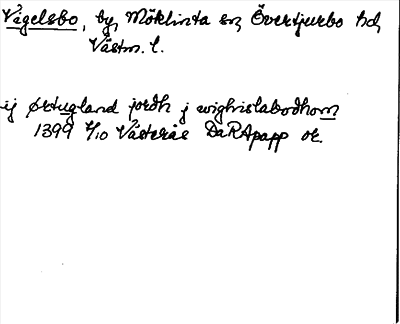 Vigelsbo, by, Möklinta sn, Övertjurbo hd,
Västm. l.
ij ørtugland jordh j wighislabodhom
1399 4/10 Västerås DaRApapp or.